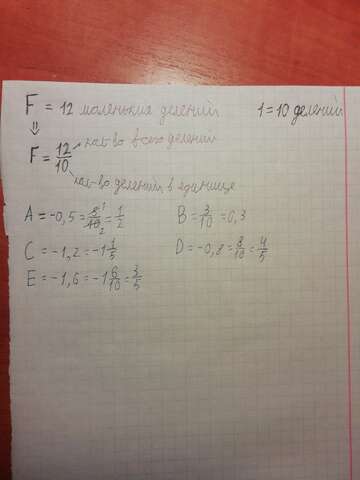 F = 12 маленьких делений 1 = 10 делений
⇓
F = 12/10 кол-во всего делений
кол-во делений в единице
A = -0,5 = 5/10 = 1/2 B = 3/10 = 0,3
C = -1,2 = -1 1/5 D = -0,8 = 8/10 = 4/5
E = -1,6 = -1 6/10 = 3/5